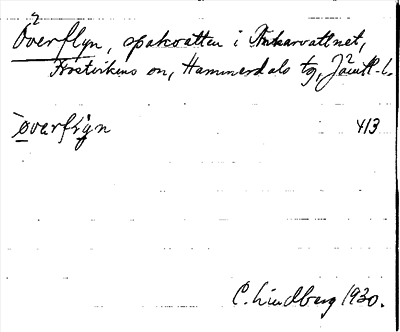 Överflyn, spakvatten i Ankarvattnet,
Frostvikens sn, Hammerdals tg, Jämtl. l.
överflyn 413
C. Lindberg 1930.